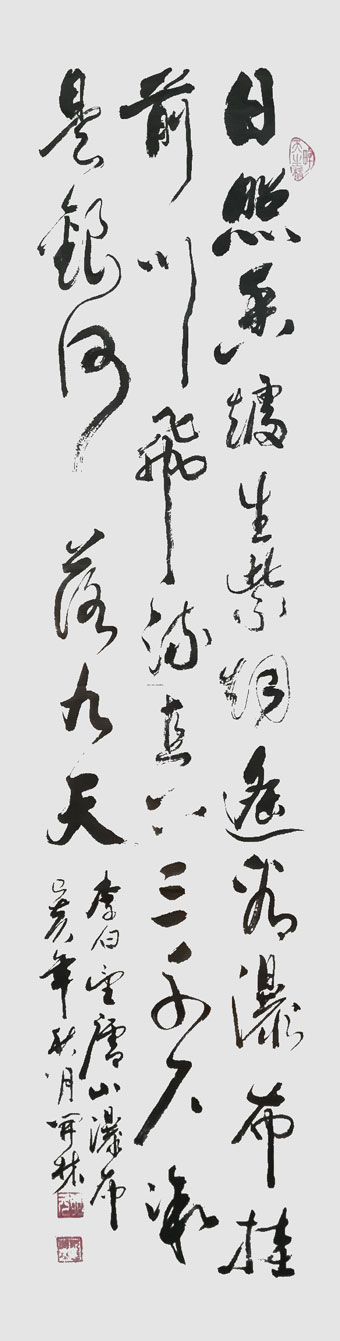 日照香爐生紫烟遙看瀑布挂
前川飛流直下三千尺疑
是銀河落九天
李白望廬山瀑布
己亥年秋月開林